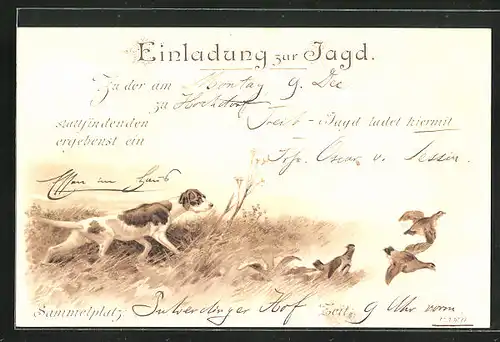 Einladung zur Jagd.
Zu der am Montag 9. Dec
zu Hochdorf
stattfindenden Treib - Jagd ladet hiermit
ergebenst ein
Oscar v.
Essen im Haus
Sammelplatz: Hof Zeit: 9 Uhr vorm